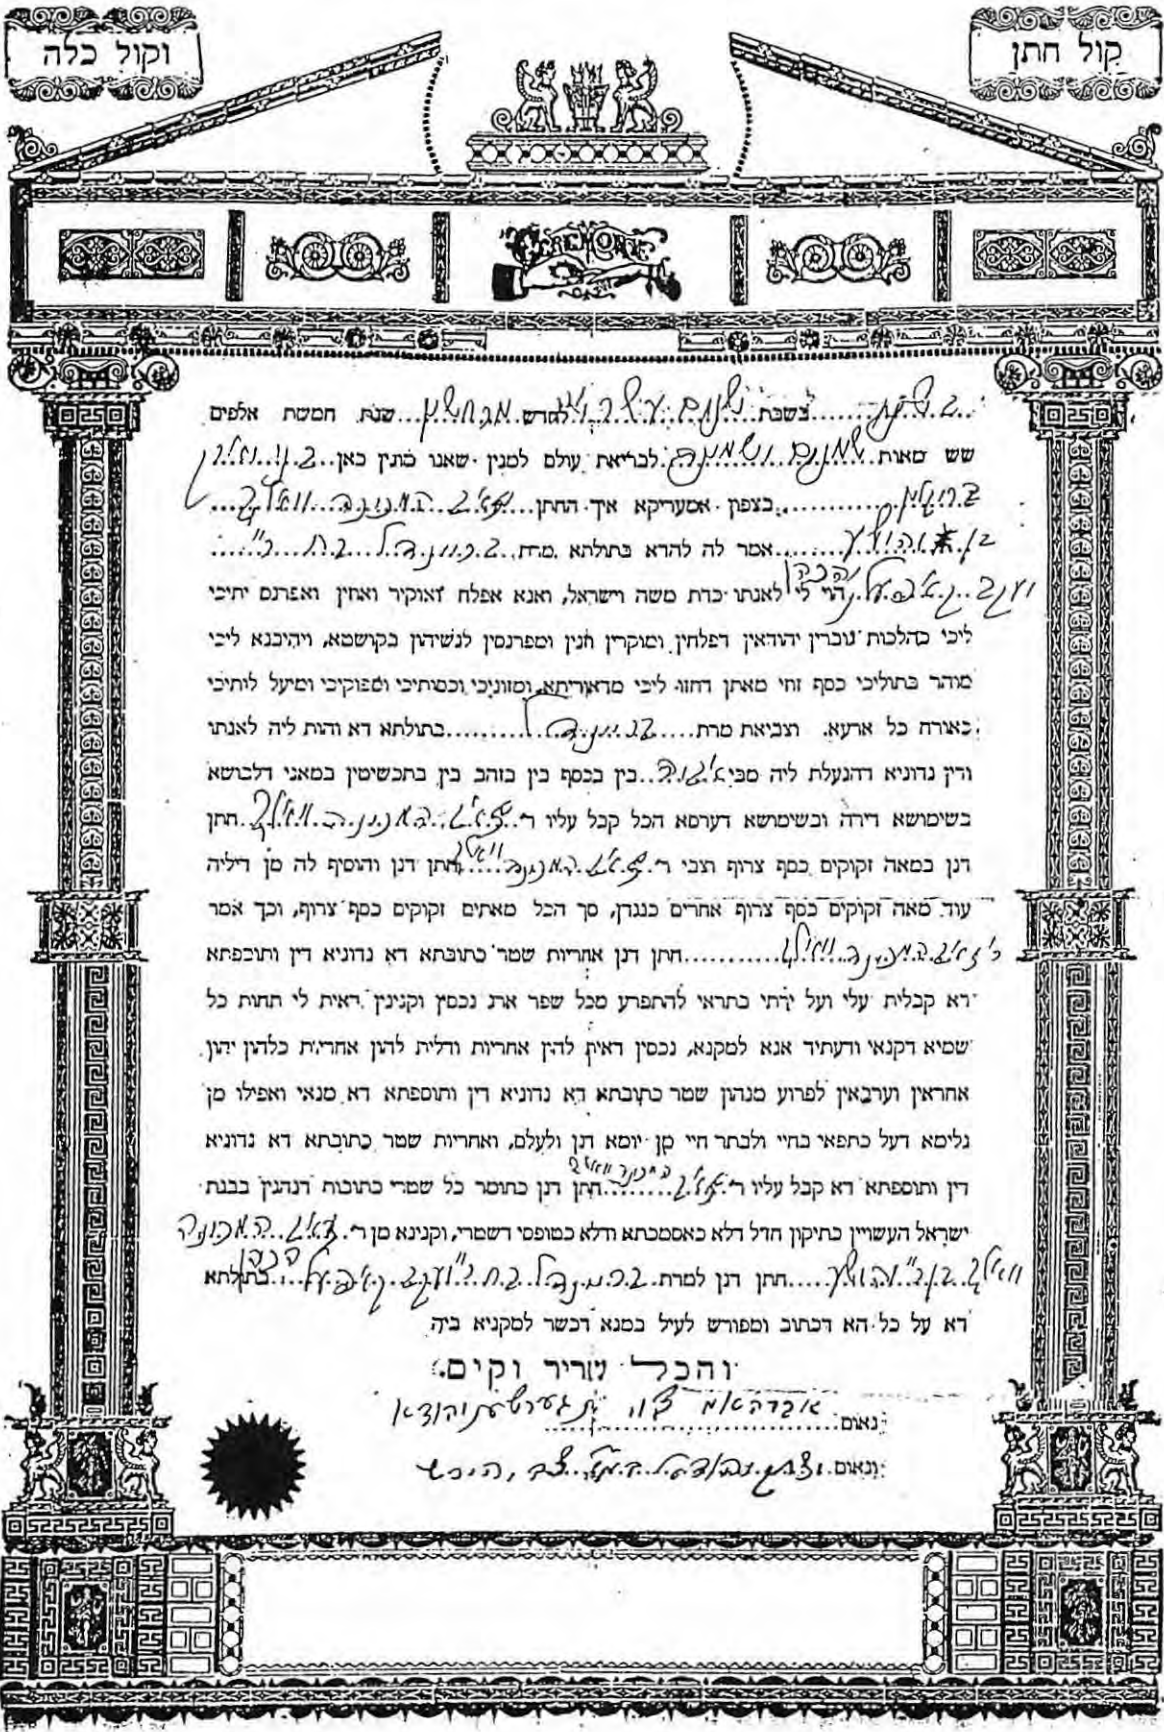 קול חתן
וקול כלה
CEREMONY
בשבת שנים עשר לחדש מרחשון שנת חמשת אלפים
שש מאות שמנים ושמונה לבריאת עולם למנין שאנו מנין כאן
ברוקלין בצפון אמעריקא איך החתן זאב המכונה וואלף
בן יהושע אמר לה להדא בתולתא מרת בת ר'
יעקב הכהן הוי לי לאנתו כדת משה וישראל, ואנא אפלח ואוקיר ואוזין ואפרנס יתיכי
ליכי כהלכות גוברין יהודאין דפלחין ומוקרין וזנין ומפרנסין לנשיהון בקושטא, ויהיבנא ליכי
מוהר בתוליכי כסף זוזי מאתן דחזו ליכי מדאוריתא, ומזוניכי וכסותיכי וספוקיכי ומיעל ליתיכי
כאורח כל ארעא. וצביאת מרת בתולתא דא והות ליה לאנתו
ודין נדוניא דהנעלת ליה מבי אבוה בין בכסף בין בזהב בין בתכשיטין במאני דלבושא
בשימושא דירה ובשימושא דערסא הכל קבל עליו ר' זאב המכונה וואלף חתן
דנן במאה זקוקים כסף צרוף וצבי ר' זאב המכונה וואלף חתן דנן והוסיף לה מן דיליה
עוד מאה זקוקים כסף צרוף אחרים כנגדן, סך הכל מאתים זקוקים כסף צרוף, וכך אמר
ר' זאב המכונה וואלף חתן דנן אחריות שטר כתובתא דא נדוניא דין ותוספתא
דא קבלית עלי ועל ירתי בתראי להתפרע מכל שפר ארג נכסין וקנינין דאית לי תחות כל
שמיא דקנאי ודעתיד אנא למקנא, נכסין דאית להון אחריות ודלית להון אחריות כלהון יהון
אחראין וערבאין לפרוע מנהון שטר כתובתא דא נדוניא דין ותוספתא דא מנאי ואפילו מן
גלימא דעל כתפאי בחיי ולבתר חיי מן יומא דנן ולעלם, ואחריות שטר כתובתא דא נדוניא
דין ותוספתא דא קבל עליו ר' זאב המכונה וואלף חתן דנן כחומר כל שטרי כתובות דנהגין בבנת
ישראל העשויין כתיקון חזל דלא כאסמכתא ודלא כטופסי דשטרי, וקנינא מן ר' זאב המכונה
וואלף בן ר' יהושע חתן דנן למרת בת ר' יעקב הכהן בתולתא
דא על כל הא דכתוב ומפורש לעיל במנא דכשר למקניא ביה
והכל שריר וקים.
נאום אברהאם
ונאום יצחק צבי הירש